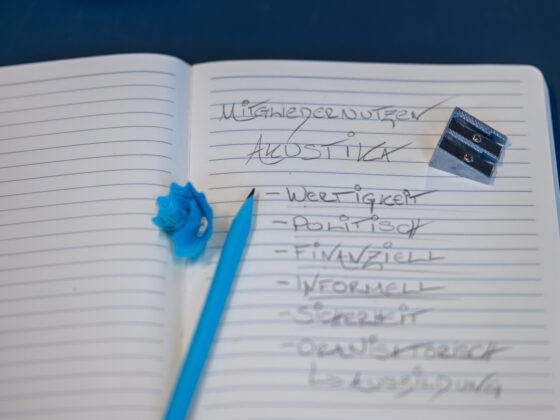 MITGLIEDERNUTZEN
AKUSTIKA
- WERTIGKEIT
- POLITISCH
- FINANZIELL
- INFORMELL
- SICHERHEIT
- ORGANISATORISCH
↳ AUSBILDUNG